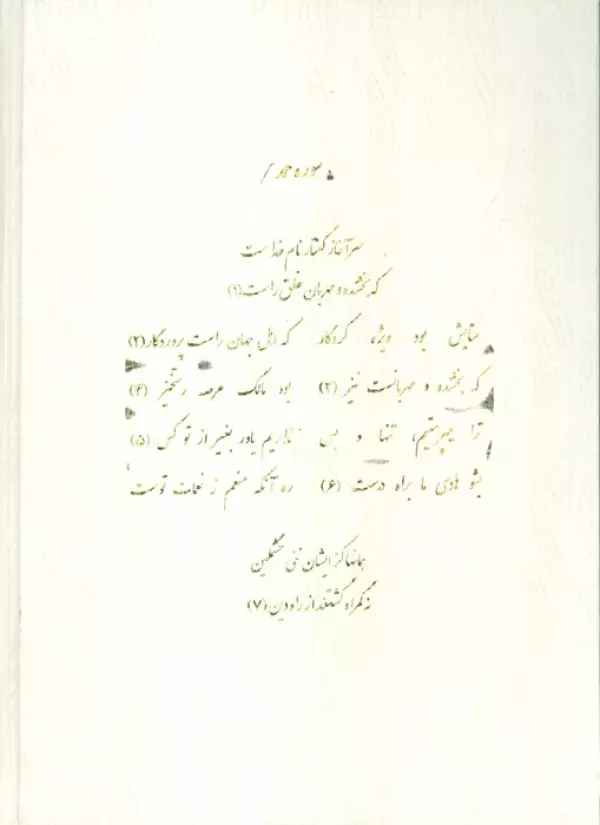 سوره حمد
سرآغاز گفتار نام خداست
که بخشنده و مهربان خلق راست (۱)
ستایش بود ویژه کردگار که اهل جهان راست پروردگار (۲)
که بخشنده و مهربانست نیز (۳) بود مالک عرصه رستخیز (۴)
ترا میپرستیم، تنها و بس نداریم یاور بغیر از تو کس (۵)
بشو هادی ما براه درست (۶) ره آنکه منعم ز نعمات توست
همانها کز ایشان نئی خشمگین
نه گمراه گشتند از راه دین (۷)